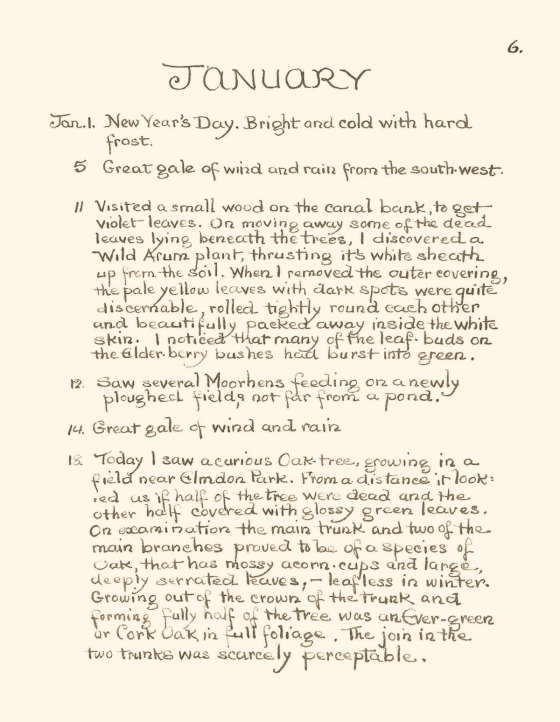 6.
JANUARY
Jan.1. New Year's Day. Bright and cold with hard
frost.
5 Great gale of wind and rain from the south-west.
11 Visited a small wood on the canal bank, to get
violet leaves. On moving away some of the dead
leaves lying beneath the trees, I discovered a
Wild Arum plant, thrusting it's white sheath
up from the soil. When I removed the outer covering,
the pale yellow leaves with dark spots were quite
discernable, rolled tightly round each other
and beautifully packed away inside the white
skin. I noticed that many of the leaf-buds on
the Elder-berry bushes had burst into green.
12. Saw several Moorhens feeding on a newly
ploughed field, not far from a pond.
14. Great gale of wind and rain
18. Today I saw a curious Oak-tree, growing in a
field near Elmdon Park. From a distance it look:
:ed as if half of the tree were dead and the
other half covered with glossy green leaves.
On examination the main trunk and two of the
main branches proved to be of a species of
Oak, that has mossy acorn-cups and large,
deeply serrated leaves,- leafless in winter.
Growing out of the crown of the trunk and
forming fully half of the tree was an Ever-green
or Cork Oak in full foliage. The join in the
two trunks was scarcely perceptable.